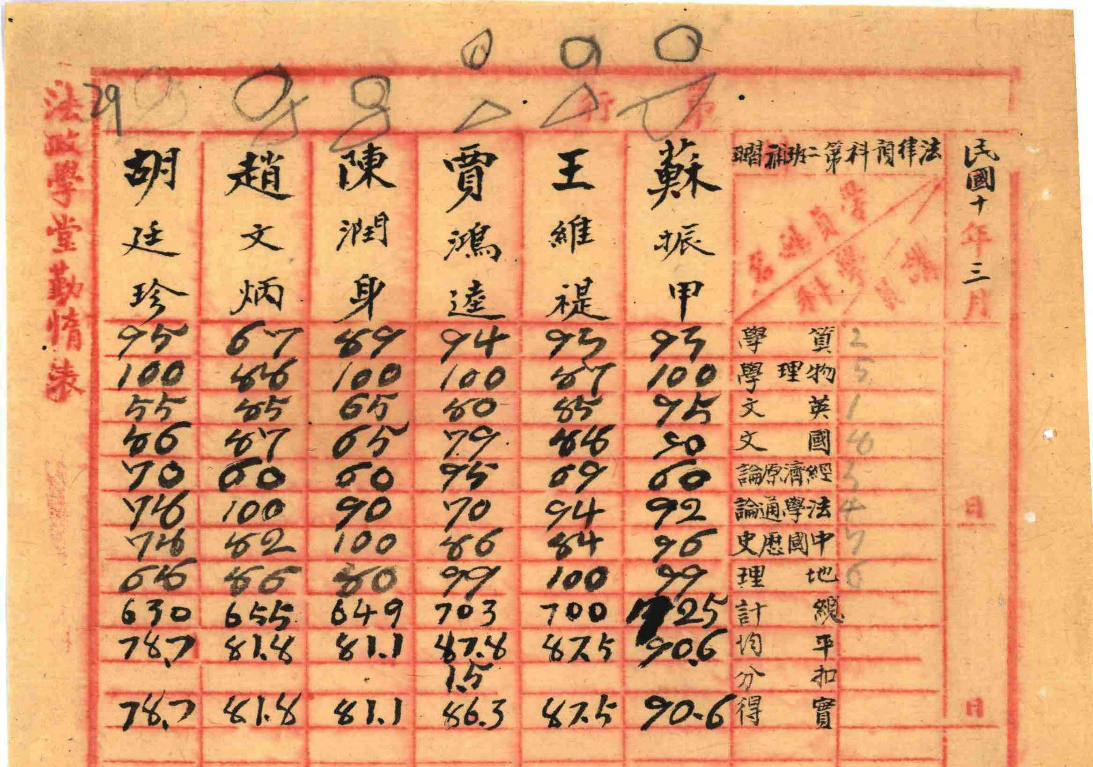 第 行
民國十年三月 日 日
法律預科第二班補習
教員
學科
學員姓名
2 算學
5 物理學
1 英文
8 國文
3 經濟原論
4 法學通論
7 中國歷史
6 地理
總計
平均
扣分
實得
蘇振甲
93
100
95
90
60
92
96
99
725
90.6
90.6
王維禔
93
87
85
88
69
94
84
100
700
87.5
87.5
賈鴻逵
94
100
80
79
95
70
86
99
703
87.8
1.5
86.3
陳潤身
89
100
65
65
60
90
100
80
649
81.1
81.1
趙文炳
67
88
85
87
60
100
82
86
655
81.8
81.8
胡廷珍
95
100
55
86
70
78
78
68
630
78.7
78.7
29
法政學堂勤惰表